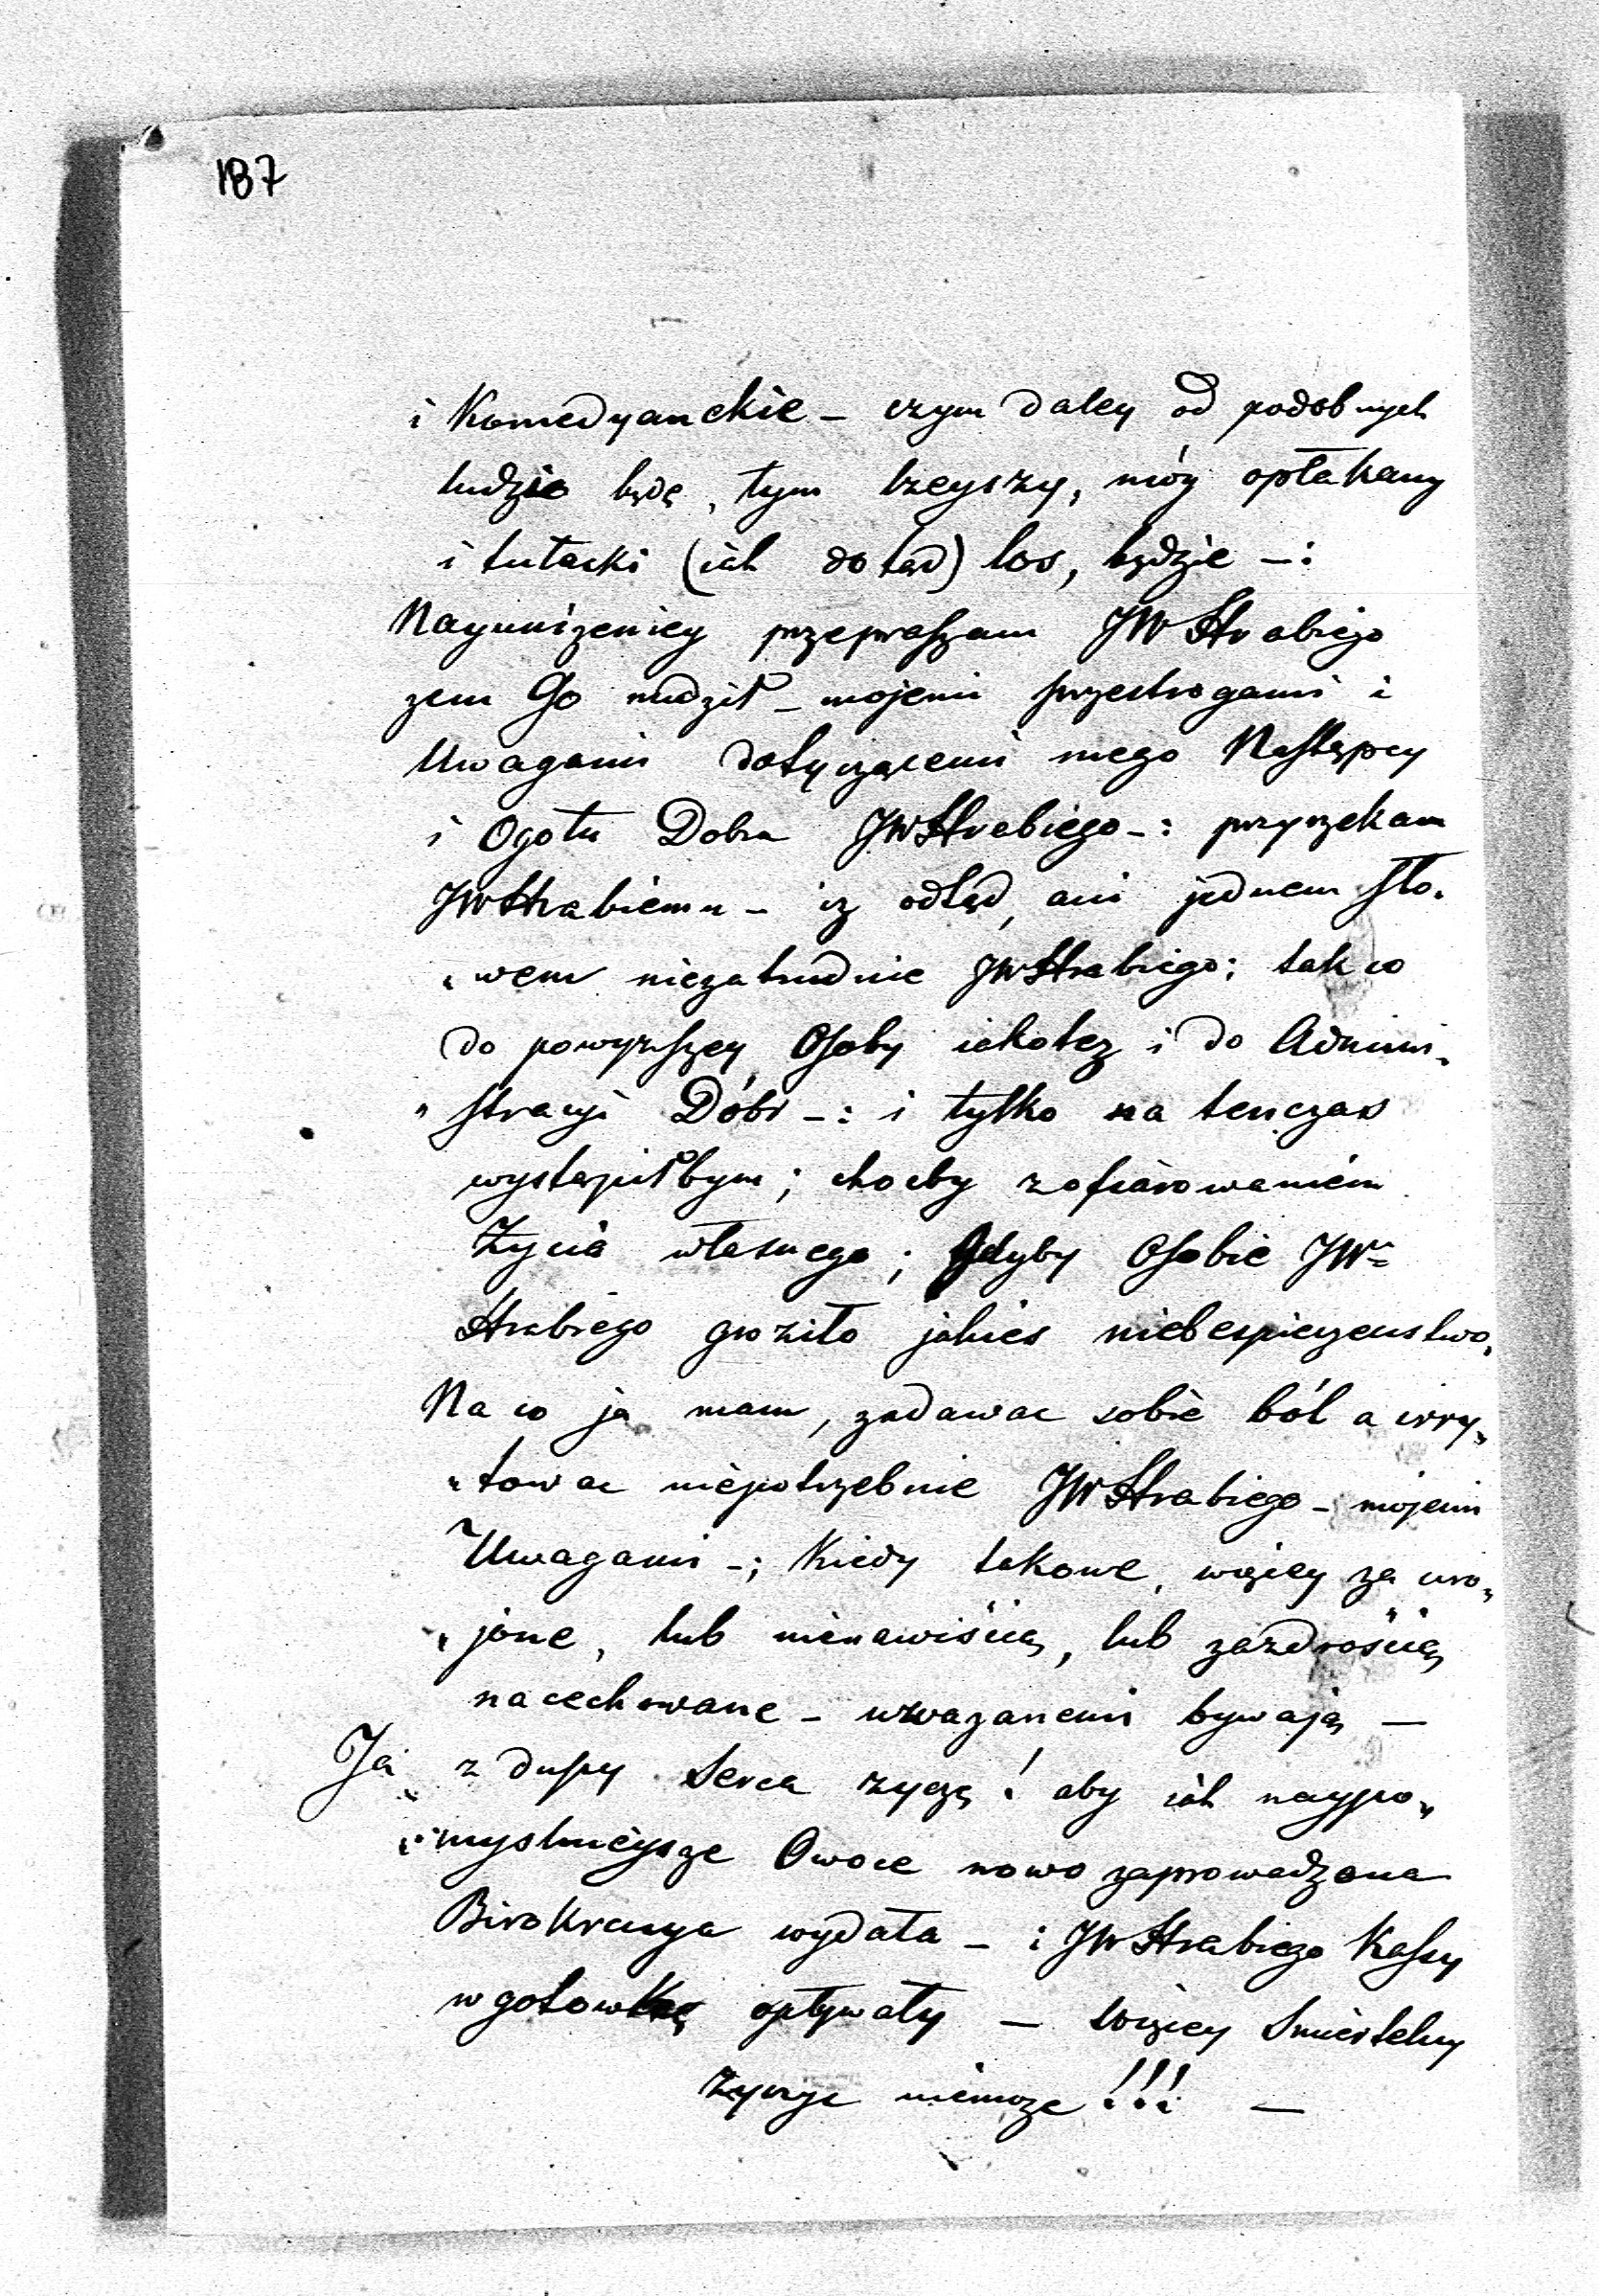 187
i Komedyanckie – czym daley od podobnych
ludzio będę, tym lżeyszy, móy opłakany
i tułacki (iak dotąd) los, będzie –:
Nayuniżeniey przepraszam JWHrabiego
zem Go nudził – mojemi przestrogami i
Uwagami dotyczącemi mego Następcy
i Ogołu Dobra JWHrabiego –: przyrzekam
JWHrabiemu – iz odtąd, ani jednem sło„
„wem niezatrudnie JWHrabiego; tak co
do powyzszey Osoby iakotez i do Admini„
„stracyi Dóbr –: i tylko na tenczas
wystąpiłbym; choćby zofiarowaniem
Życia własnego; Gdyby Osobie JW=
Hrabiego groziło jakies niebespieczenstwo.
Na co ja mam, zadawac sobie ból a irry„
„towac niepotrzebnie JWHrabiego – mojemi
Uwagami –; Kiedy takowe, więcey za uro„
„jone, lub nienawiścią, lub zazdrością
nacechowane – uwazanemi bywają —
Ja z duszy Serca zyczę! aby iak naypo„
„myslnieysze Owoce nowo zaprowadzona
Birokracya wydała – i JWHrabiego Kassy
w gotowkę opływały — więcey Smiertelny
zyczyc niemoze!!! —